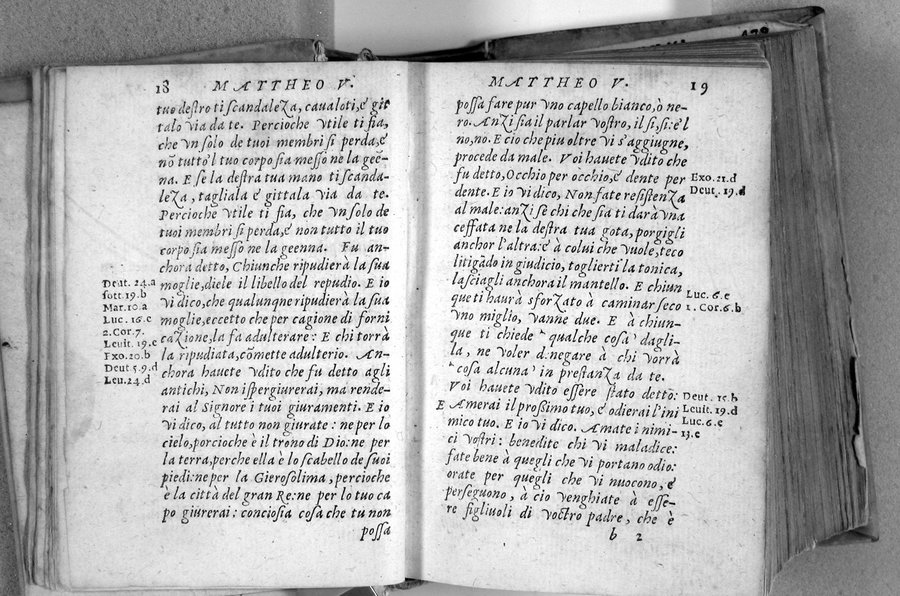 18 MATTHEO V.
tuo destro ti scandaleza, caualoti, é git
talo via da te. Percioche vtile ti sia,
che vn solo de tuoi membri si perda, é
nō tutto'l tuo corpo sia messo ne la geē-
na. E se la destra tua mano ti scanda-
leza, tagliala é gittala via da te.
Percioche vtile ti sia, che vn solo de
tuoi membri si perda, é non tutto il tuo
corpo sia messo ne la geenna. Fu an-
chora detto, Chiunche ripudierà la sua
moglie, diele il libello del repudio. E io
vi dico, che qualunqne ripudierà la sua
moglie, eccetto che per cagione di forni
cazione, la fa adulterare: E chi torrà
la ripudiata, cōmette adulterio. An-
chora hauete vdito che fu detto agli
antichi, Non ispergiurerai, ma rende-
rai al Signore i tuoi giuramenti. E io
vi dico, al tutto non giurate: ne per lo
cielo, porcioche è il trono di Dio: ne per
la terra, perche ella è lo scabello de suoi
piedi: ne per la Gierosolima, percioche
è la città del gran Re: ne per lo tuo ca
po giurerai: conciosia cosa che tu non
possa
Deut. 24.a
sott. 19.b
Mar. 10.a
Luc. 16.e
2. Cor. 7.
Leuit. 19.e
Exo. 20.b
Deut 5.9.d
Leu. 24.d
MATTHEO V. 19
possa fare pur vno capello bianco, ò ne-
ro. Anzi sia il parlar vostro, il si, si: é l
no, no. E cio che piu oltre vi s'aggiugne,
procede da male. Voi hauete vdito che
fu detto, Occhio per occhio, é dente per
dente. E io vi dico, Non fate resistenza
al male: anzi se chi che sia ti darà vna
ceffata ne la destra tua gota, porgigli
anchor l'altra: é à colui che vuole, teco
litigādo in giudicio, toglierti la tonica,
lasciagli anchora il mantello. E chiun
que ti haurà sforzato à caminar seco
vno miglio, vanne due. E à chiun-
que ti chiede qualche cosa dagli-
la, ne voler d.negare à chi vorrà
cosa alcuna in prestanza da te.
Voi hauete vdito essere stato detto:
E Amerai il prossimo tuo, é odierai l'ini
mico tuo. E io vi dico. Amate i nimi-
ci vostri: benedite chi vi maladice:
fate bene à quegli che vi portano odio:
orate per quegli che vi nuocono, é
perseguono, à cio venghiate à esse-
re figliuoli di vostro padre, che è
b 2
Exo. 21.d
Deut. 19.d
Luc. 6.e
1. Cor. 6.b
Deut. 15.b
Leuit. 19.d
Luc. 6.e
13.e